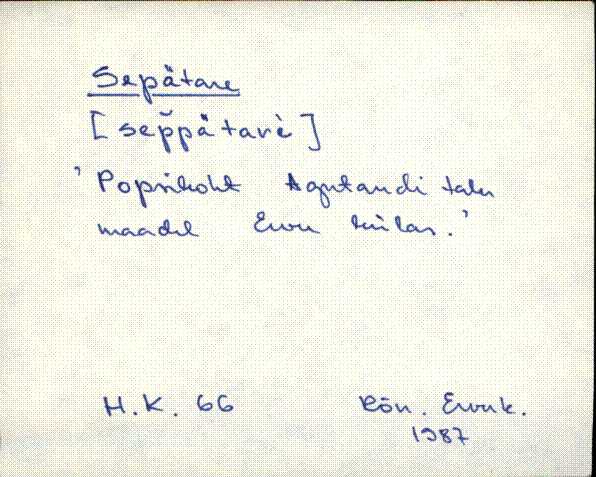 Sepätare
[sep̆pätarè]
'Popsikoht Agutandi talu
maadel Ervu külas.'
H.K. 66 Kõn. Ervuk.
1987